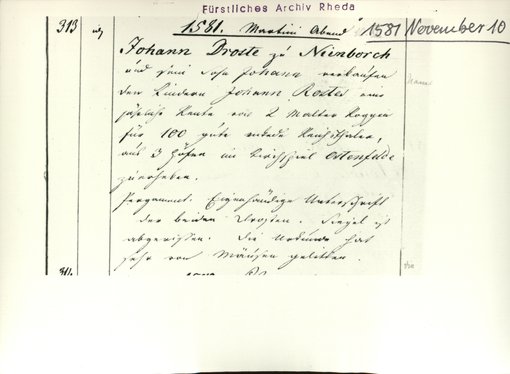 Fürstliches Archiv Rheda
313 1581. Martini Abend 1581 November 10
Johann Droste zu Nienborch
und sein Sohn Johann verkaufen
den Kindern Johann Rostes eine
jährliche Rente von 2 Malter Roggen
für 100 gute Reichsthaler,
aus 3 Höfen im Kirchspiel Ostenfelde
zuerheben.
Pergament. Eigenhändige Unterschrift
der beiden Drosten. Siegel ist
abgerissen. Die Urkunde hat
sehr von Mäusen gelitten.